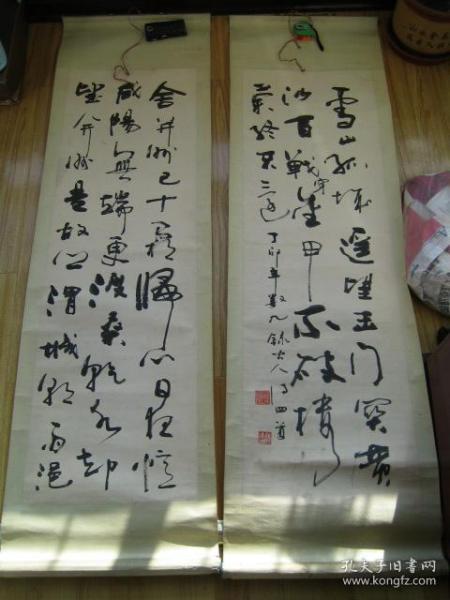 雪山孤城遥望玉门関黄
沙百戰穿金甲不破樓
蘭終不還
丁卯年數九錄古人詩四首
舍并州已十霜歸心日夜憶
咸陽無端更渡桑乾水却
望并州是故鄉渭城朝雨浥
孔夫子旧书网
www.kongfz.com